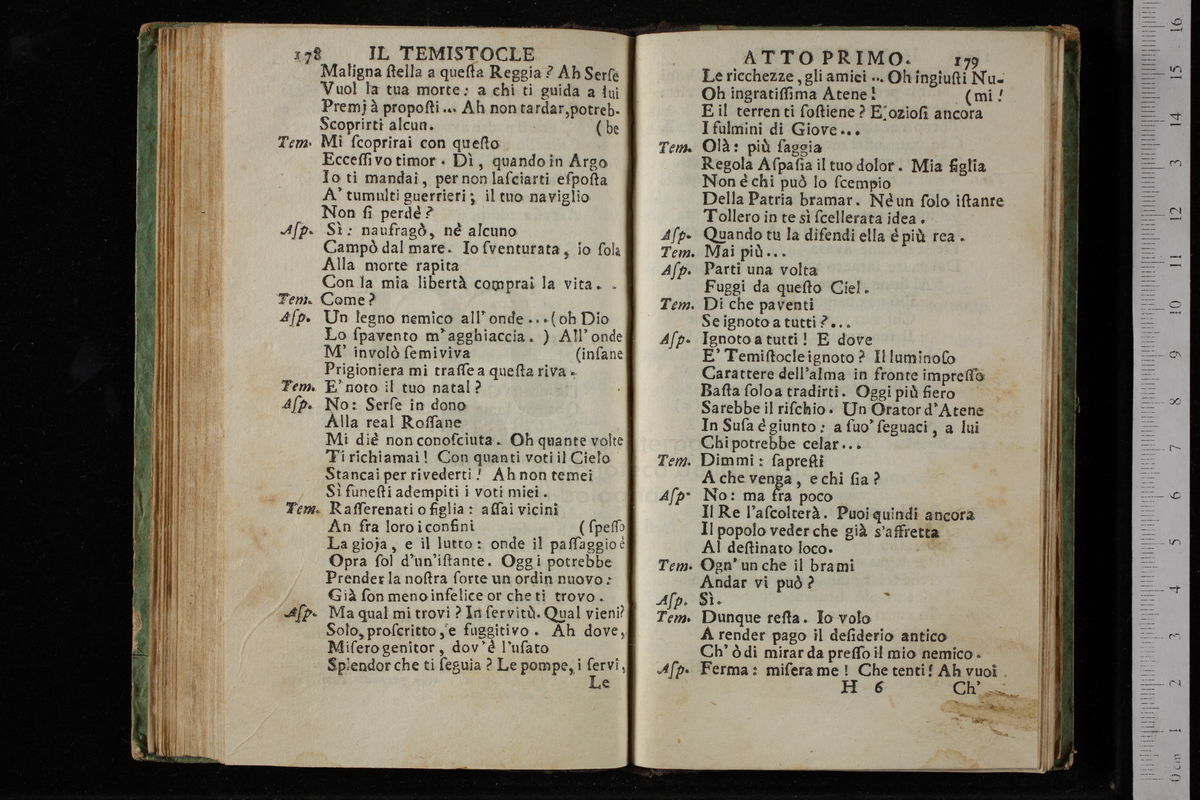 178 IL TEMISTOCLE
Maligna ſtella a queſta Reggia? Ah Serſe
Vuol la tua morte: a chi ti guida a lui
Premj à propoſti... Ah non tardar, potreb-
Scoprirti alcun. (be
Tem. Mi ſcoprirai con queſto
Ecceſſivo timor. Dì, quando in Argo
Io ti mandai, per non laſciarti eſpoſta
A' tumulti guerrieri; il tuo naviglio
Non ſi perdè?
Aſp. Sì: naufragò, nè alcuno
Campò dal mare. Io ſventurata, io ſola
Alla morte rapita
Con la mia libertà comprai la vita.
Tem. Come?
Aſp. Un legno nemico all'onde...(oh Dio
Lo ſpavento m'agghiaccia.) All'onde
M' involò ſemiviva (inſane
Prigioniera mi traſſe a queſta riva.
Tem. E' noto il tuo natal?
Aſp. No: Serſe in dono
Alla real Roſſane
Mi diè non conoſciuta. Oh quante volte
Ti richiamai! Con quanti voti il Cielo
Stancai per rivederti! Ah non temei
Sì funeſti adempiti i voti miei.
Tem. Raſſerenati o figlia: aſſai vicini
An fra loro i confini (ſpeſſo
La gioja, e il lutto: onde il paſſaggio è
Opra ſol d'un'iſtante. Oggi potrebbe
Prender la noſtra ſorte un ordin nuovo:
Già ſon meno infelice or che ti trovo.
Aſp. Ma qual mi trovi? In ſervitù. Qual vieni?
Solo, proſcritto, e fuggitivo. Ah dove,
Miſero genitor, dov'è l'uſato
Splendor che ti ſeguia? Le pompe, i ſervi,
Le
ATTO PRIMO. 179
Le ricchezze, gli amici... Oh ingiuſti Nu-
Oh ingratiſſima Atene! (mi!
E il terren ti ſoſtiene? E' ozioſi ancora
I fulmini di Giove...
Tem. Olà: più ſaggia
Regola Aſpaſia il tuo dolor. Mia figlia
Non è chi può lo ſcempio
Della Patria bramar. Nè un ſolo iſtante
Tollero in te sì ſcellerata idea.
Aſp. Quando tu la difendi ella è più rea.
Tem. Mai più...
Aſp. Parti una volta
Fuggi da queſto Ciel.
Tem. Di che paventi
Se ignoto a tutti?...
Aſp. Ignoto a tutti! E dove
E' Temiſtocle ignoto? Il luminoſo
Carattere dell'alma in fronte impreſſo
Baſta ſolo a tradirti. Oggi più fiero
Sarebbe il riſchio. Un Orator d'Atene
In Suſa è giunto: a ſuo' ſeguaci, a lui
Chi potrebbe celar...
Tem. Dimmi: ſapreſti
A che venga, e chi ſia?
Aſp. No: ma fra poco
Il Re l'aſcolterà. Puoi quindi ancora
Il popolo veder che già s'affretta
Al deſtinato loco.
Tem. Ogn' un che il brami
Andar vi può?
Aſp. Sì.
Tem. Dunque reſta. Io volo
A render pago il deſiderio antico
Ch' ò di mirar da preſſo il mio nemico.
Aſp. Ferma: miſera me! Che tenti! Ah vuoi
H 6 Ch'
16
15
14
13
12
11
10
9
8
7
6
5
4
3
2
1
0 cm